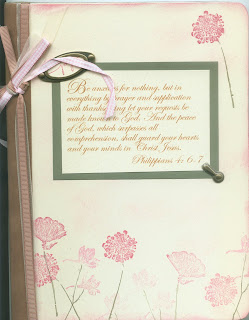 Be anxious for nothing, but in
everything by prayer and supplication
with thanksgiving let your requests be
made known to God. And the peace
of God, which surpasses all
comprehension, shall guard your hearts
and your minds in Christ Jesus.
Philippians 4: 6-7